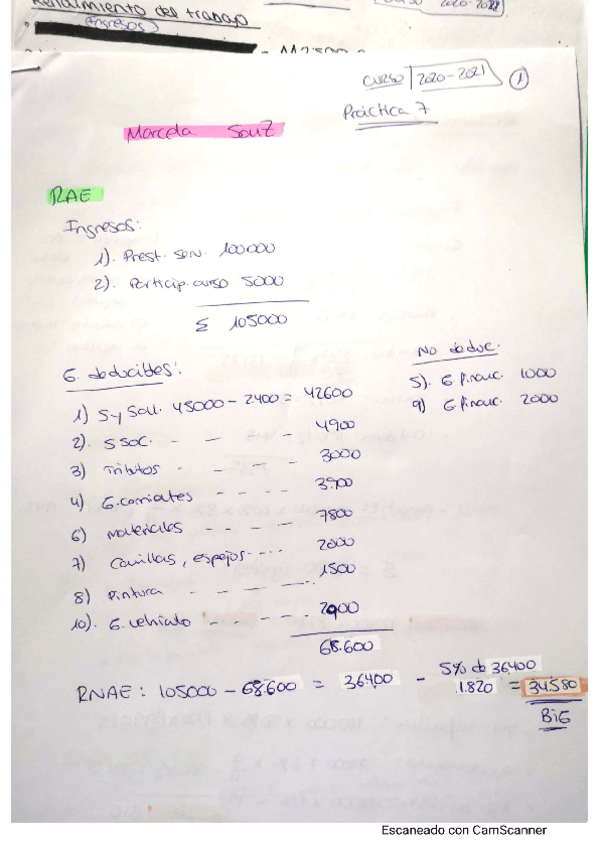 Rendimiento del trabajo
(Ingresos)
2020-2021
CURSO 2020-2021 1
Práctica 7
Marcela Sauz
RAE
Ingresos:
1). Prest. serv. 100000
2). Particip. curso 5000
Σ 105000
No deduc.
5). G. financ. 1000
9) G. financ. 2000
G. deducibles:
1) S y Sal. 45000 - 2400 = 42600
2). S SOC. - - - 4900
3) Tributos - - - 3000
4) G. corrientes - - - - 3900
6) materiales - - - - 7800
7) Camillas, espejos - - - - 2000
8) Pintura - - - - - 1500
10). G. vehiculo - - - - - 2900
68.600
RNAE: 105000 - 68.600 = 36400 - 5% de 36.400
1.820 = 34580
BIG
Escaneado con CamScanner